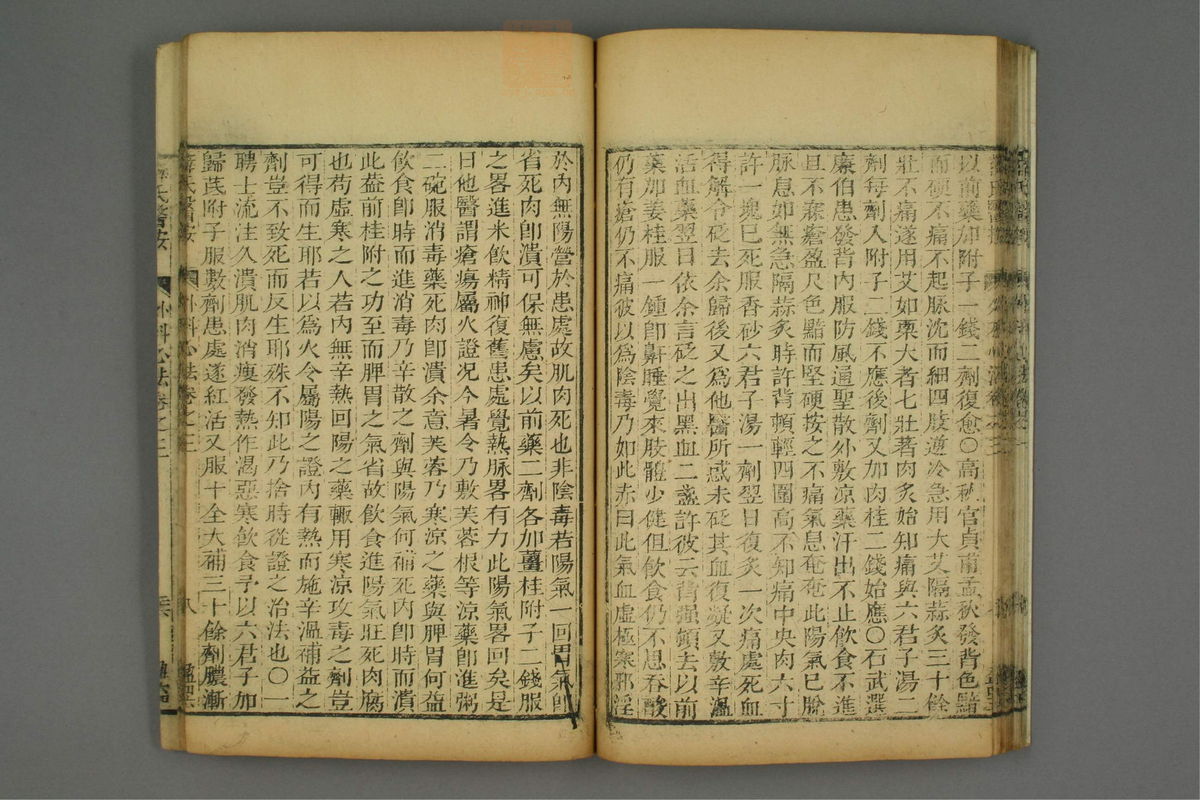 以前藥加附子一錢二劑復愈○高秋官貞甫孟秋發背色黯
而硬不痛不起脉沈而細四肢逆冷急用大艾隔蒜炙三十餘
壯不痛遂用艾如栗大者七壯著肉炙始知痛與六君子湯二
劑每劑入附子二錢不應後劑又加肉桂二錢始應○石武選
廉伯患發背內服防風通聖散外敷凉藥汗出不止飲食不進
且不寐瘡盈尺色黯而堅硬按之不痛氣息奄奄此陽氣已脫
脉息如無急隔蒜炙時許背頓輕四圍高不知痛中央肉六寸
許一塊已死服香砂六君子湯一劑翌日復炙一次痛處死血
得解令砭去余歸後又爲他醫所惑未砭其血復凝又敷辛溫
活血藥翌日依余言砭之出黑血二盞許彼云背强頓去以前
藥加姜桂服一鍾卽鼾睡覺來肢體少健但飲食仍不思吞酸
仍有瘡仍不痛彼以爲陰毒乃如此赤曰此氣血虛極寒邪淫
於內無陽營於患處故肌肉死也非陰毒若陽氣一回胃氣卽
省死肉卽潰可保無慮矣以前藥二劑各加薑桂附子二錢服
之畧進米飲精神復舊患處覺熱脉畧有力此陽氣畧回矣是
日他醫謂瘡瘍屬火證况今暑令乃敷芙蓉根等凉藥卽進粥
二碗服消毒藥死肉卽潰余意芙蓉乃寒凉之藥與脾胃何益
飲食卽時而進消毒乃辛散之劑與陽氣何補死肉卽時而潰
此葢前桂附之功至而脾胃之氣省故飲食進陽氣旺死肉腐
也苟虛寒之人若內無辛熱回陽之藥輒用寒凉攻毒之劑豈
可得而生耶若以爲火令屬陽之證內有熱而施辛溫補益之
劑豈不致死而反生耶殊不知此乃捨時從證之治法也○一
聘士流注久潰肌肉消瘦發熱作渴惡寒飲食予以六君子加
歸芪附子服數劑患處遂紅活又服十全大補三十餘劑膿漸
薛氏醫按
外科心法卷之三